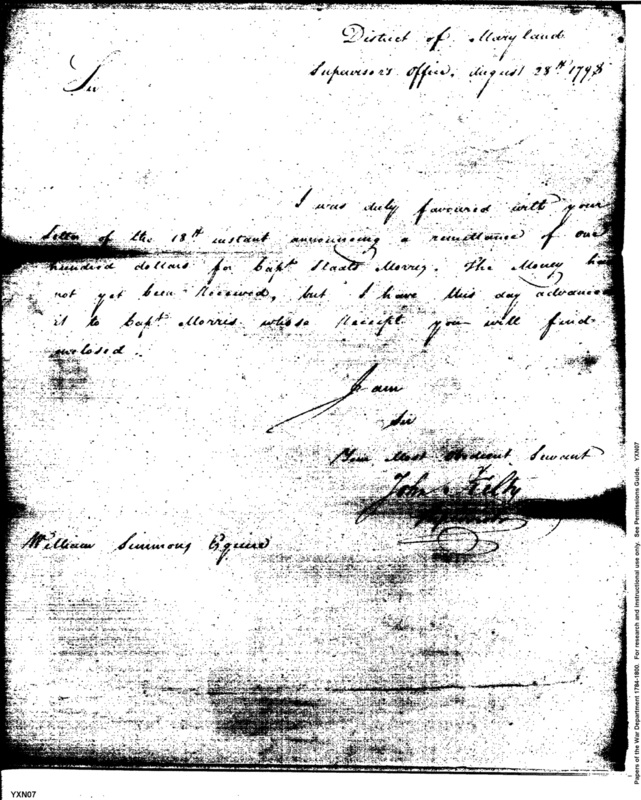 District of Maryland
Supervisor's Office, August 28th 1798
Sir
I was duly favoured with your
Letter of the 18th instant announcing a remittance of one
hundred dollars for Capt Staats Morris. The Money has
not yet been Received, but I have this day advanced
it to Capt Morris whose Receipt you will find
enclosed.
I am
Sir
Your Most Obedient Servant
John Kilty
Supervisor
William Simmons Esquire
Papers of the War Department 1784-1800. For research and instructional use only. See Permissions Guide. YXN07
YXN07